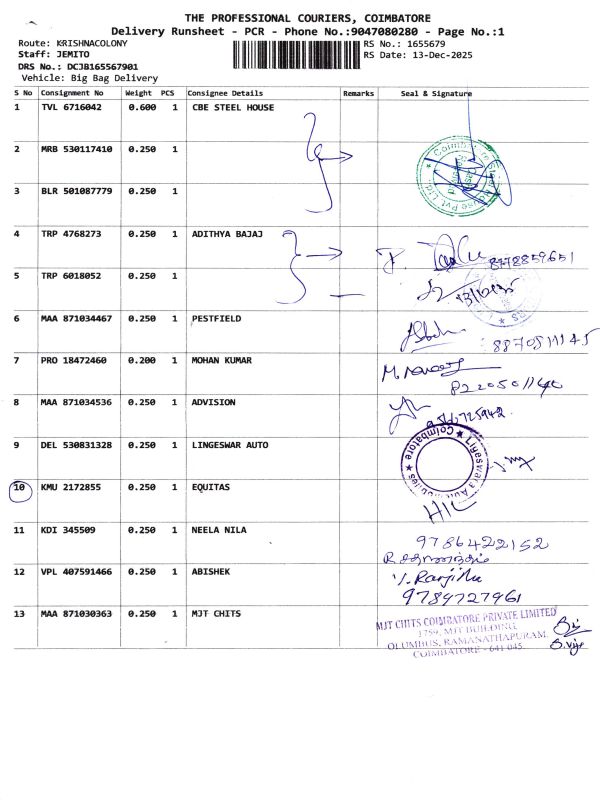 THE PROFESSIONAL COURIERS, COIMBATORE
Delivery Runsheet - PCR - Phone No.:9047080280 - Page No.:1
Route: KRISHNACOLONY
RS No.: 1655679
Staff: JEMITO
RS Date: 13-Dec-2025
DRS No.: DCJB165567901
Vehicle: Big Bag Delivery
S No Consignment No Weight PCS Consignee Details Remarks Seal & Signature
1 TVL 6716042 0.600 1 CBE STEEL HOUSE
2 MRB 530117410 0.250 1
3 BLR 501087779 0.250 1
4 TRP 4768273 0.250 1 ADITHYA BAJAJ
8778859651
5 TRP 6018052 0.250 1
6 MAA 871034467 0.250 1 PESTFIELD
8870511145
7 PRO 18472460 0.200 1 MOHAN KUMAR
8 MAA 871034536 0.250 1 ADVISION
9 DEL 530831328 0.250 1 LINGESWAR AUTO
Coimbatore
10 KMU 2172855 0.250 1 EQUITAS
11 KDI 345509 0.250 1 NEELA NILA
9786422152
12 VPL 407591466 0.250 1 ABISHEK
V. Ranjithu
9789727961
13 MAA 871030363 0.250 1 MJT CHITS
MJT CHITS COIMBATORE PRIVATE LIMITED
1759, MJT BUILDING
OLUMBUS, RAMANATHAPURAM,
COIMBATORE - 641 045